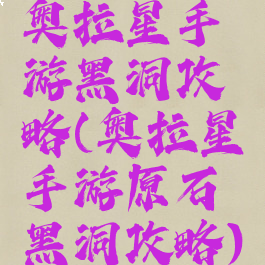 奥拉星手
游黑洞攻
略(奥拉星
手游原石
黑洞攻略)